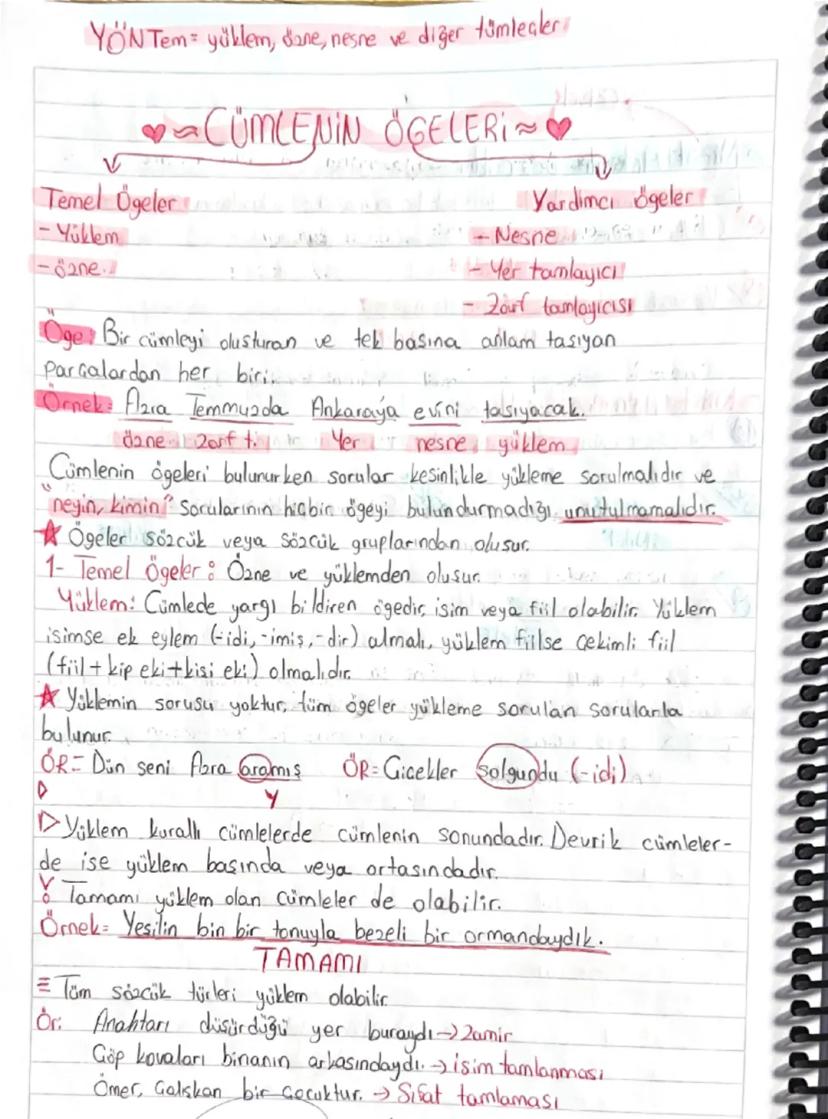 YÖNTem= yüklem, özne, nesne ve diğer tümleçler
♥≈CÜMLENİN ÖGELERİ≈♥
Temel Ögeler Yardımcı ögeler
- Yüklem - Nesne
- özne - Yer tamlayıcı
- Zarf tamlayıcısı
Öge: Bir cümleyi oluşturan ve tek başına anlam taşıyan
parçalardan her biri.
Örnek: Azra Temmuzda Ankaraya evini taşıyacak.
özne zarf t. Yer nesne yüklem
Cümlenin ögeleri bulunurken sorular kesinlikle yükleme sorulmalıdır ve
"neyin, kimin" sorularının hiçbir ögeyi bulundurmadığı unutulmamalıdır.
★ Ögeler sözcük veya sözcük gruplarından oluşur.
1- Temel Ögeler: Özne ve yüklemden oluşur.
Yüklem: Cümlede yargı bildiren ögedir, isim veya fiil olabilir. Yüklem
isimse ek eylem (-idi, -imiş, -dir) almalı, yüklem fiilse çekimli fiil
(fiil+kip eki+kişi eki) olmalıdır.
★ Yüklemin sorusu yoktur, tüm ögeler yükleme sorulan sorularla
bulunur.
ÖR= Dün seni Azra aramış ÖR= Çiçekler solgundu (-idi)
Y
▷ Yüklem kurallı cümlelerde cümlenin sonundadır. Devrik cümleler-
de ise yüklem başında veya ortasındadır.
Tamamı yüklem olan cümleler de olabilir.
Örnek= Yeşilin bin bir tonuyla bezeli bir ormandaydık.
TAMAMI
≡ Tüm sözcük türleri yüklem olabilir
Ör: Anahtarı düşürdüğü yer buraydı → zamir
Çöp kovaları binanın arkasındaydı. → isim tamlanması
Ömer, çalışkan bir çocuktur. → Sıfat tamlaması